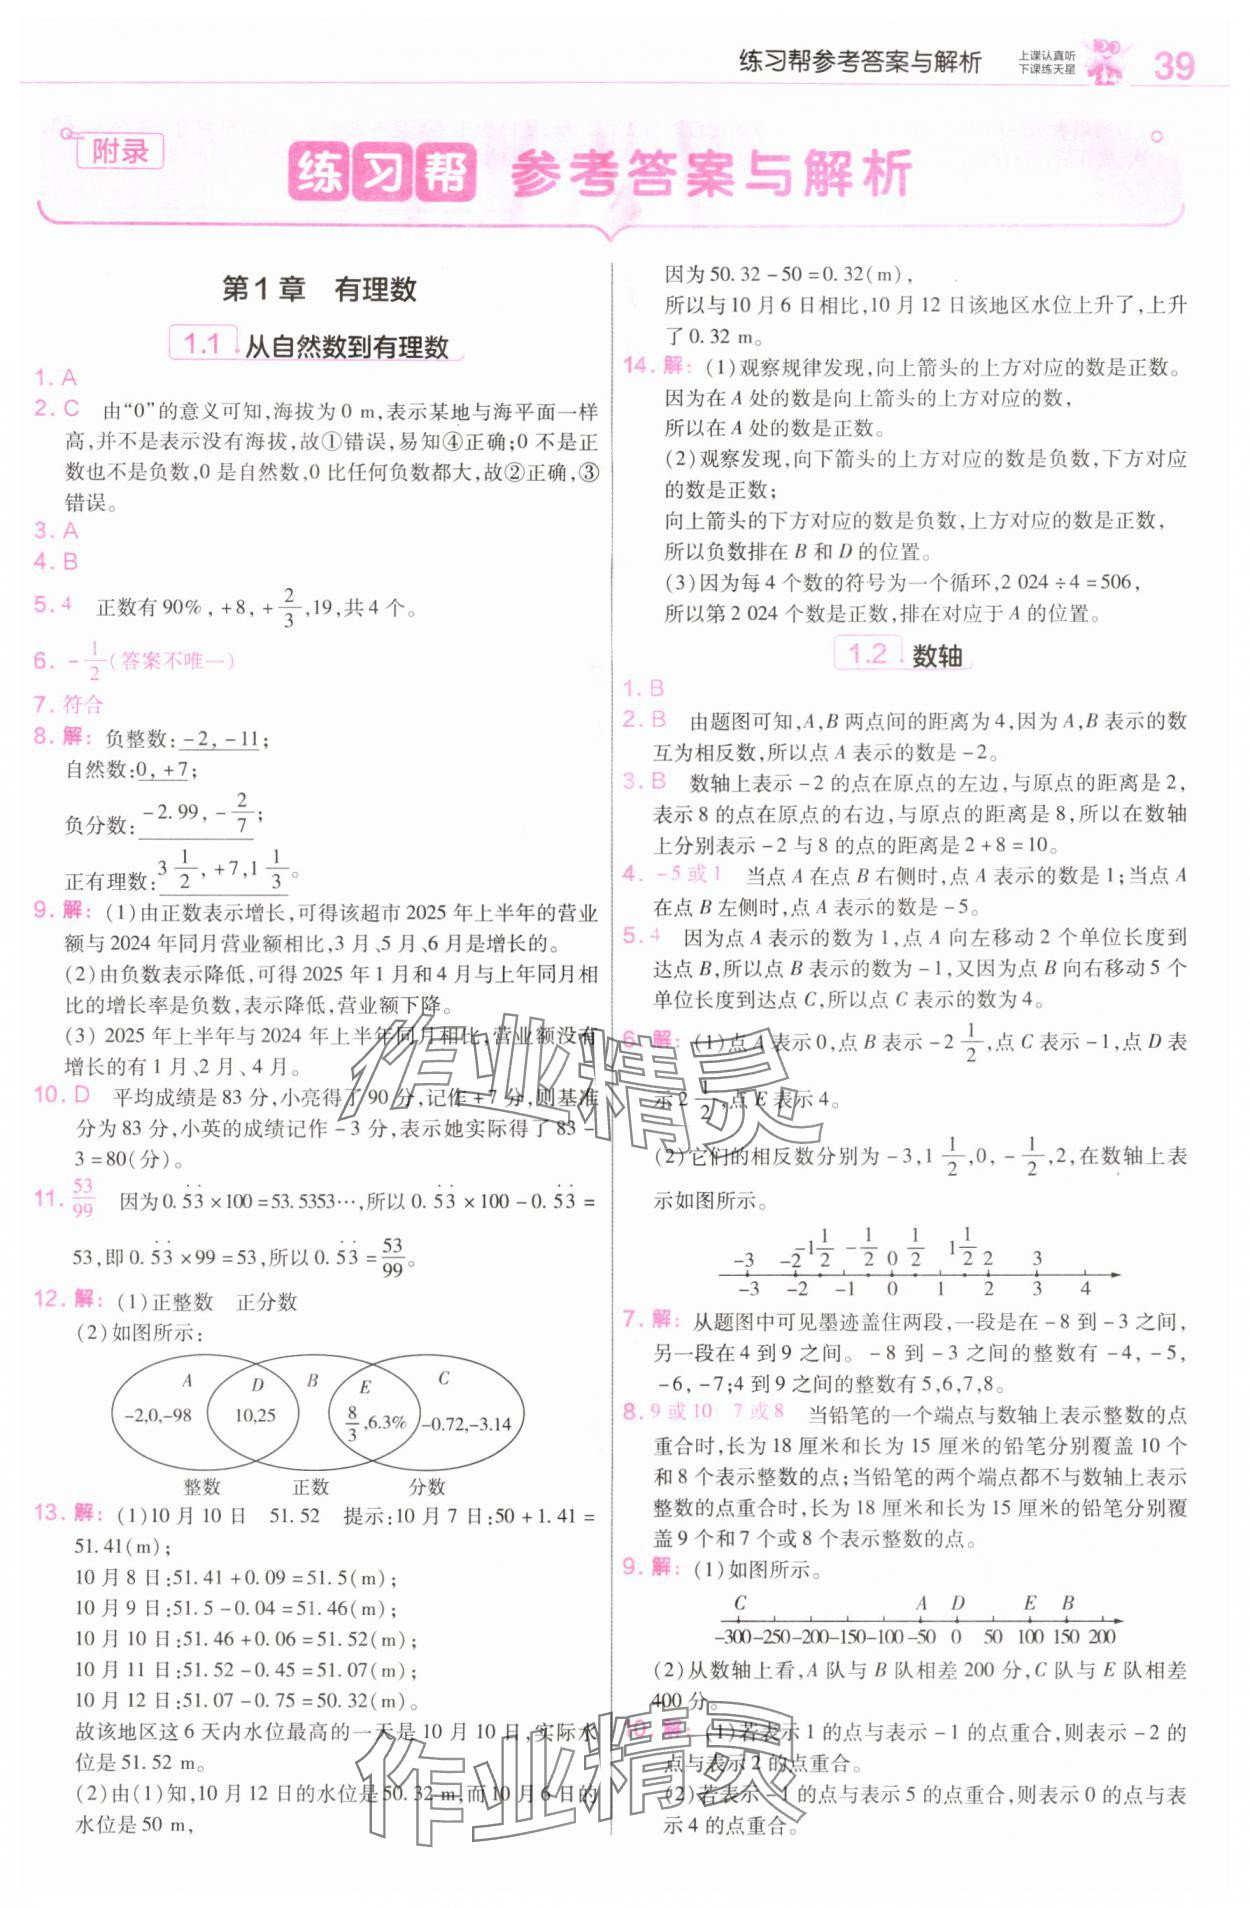 练习帮参考答案与解析
上课认真听
下课练天星
39
附录
练习帮 参考答案与解析
第1章 有理数
1.1 从自然数到有理数
1. A
2. C 由“0”的意义可知,海拔为0 m,表示某地与海平面一样
高,并不是表示没有海拔,故①错误,易知④正确;0不是正
数也不是负数,0是自然数,0比任何负数都大,故②正确,③
错误。
3. A
4. B
5. 4 正数有90%, +8, +2/3, 19,共4个。
6. -1/2(答案不唯一)
7. 符合
8. 解: 负整数: -2, -11;
自然数:0, +7;
负分数: -2.99, -2/7;
正有理数: 3 1/2, +7, 1 1/3。
9. 解: (1)由正数表示增长,可得该超市2025年上半年的营业
额与2024年同月营业额相比,3月、5月、6月是增长的。
(2)由负数表示降低,可得2025年1月和4月与上年同月相
比的增长率是负数,表示降低,营业额下降。
(3) 2025年上半年与2024年上半年同月相比,营业额没有
增长的有1月、2月、4月。
10. D 平均成绩是83分,小亮得了90分,记作+7分,则基准
分为83分,小英的成绩记作-3分,表示她实际得了83-
3=80(分)。
11. 53/99 因为0.5̇3̇×100=53.5353…,所以0.5̇3̇×100-0.5̇3̇=
53,即0.5̇3̇×99=53,所以0.5̇3̇=53/99。
12. 解: (1)正整数 正分数
(2)如图所示:
A D B E C
-2,0,-98 10,25 8/3,6.3% -0.72,-3.14
整数 正数 分数
13. 解: (1)10月10日 51.52 提示:10月7日:50+1.41=
51.41(m);
10月8日:51.41+0.09=51.5(m);
10月9日:51.5-0.04=51.46(m);
10月10日:51.46+0.06=51.52(m);
10月11日:51.52-0.45=51.07(m);
10月12日:51.07-0.75=50.32(m)。
故该地区这6天内水位最高的一天是10月10日,实际水
位是51.52 m。
(2)由(1)知,10月12日的水位是50.32 m,而10月6日的
水位是50 m,
因为50.32-50=0.32(m),
所以与10月6日相比,10月12日该地区水位上升了,上升
了0.32 m。
14. 解: (1)观察规律发现,向上箭头的上方对应的数是正数。
因为在A处的数是向上箭头的上方对应的数,
所以在A处的数是正数。
(2)观察发现,向下箭头的上方对应的数是负数,下方对应
的数是正数;
向上箭头的下方对应的数是负数,上方对应的数是正数,
所以负数排在B和D的位置。
(3)因为每4个数的符号为一个循环,2 024÷4=506,
所以第2 024个数是正数,排在对应于A的位置。
1.2 数轴
1. B
2. B 由题图可知,A,B两点间的距离为4,因为A,B表示的数
互为相反数,所以点A表示的数是-2。
3. B 数轴上表示-2的点在原点的左边,与原点的距离是2,
表示8的点在原点的右边,与原点的距离是8,所以在数轴
上分别表示-2与8的点的距离是2+8=10。
4. -5或1 当点A在点B右侧时,点A表示的数是1;当点A
在点B左侧时,点A表示的数是-5。
5. 4 因为点A表示的数为1,点A向左移动2个单位长度到
达点B,所以点B表示的数为-1,又因为点B向右移动5个
单位长度到达点C,所以点C表示的数为4。
6. 解: (1)点A表示0,点B表示-2 1/2,点C表示-1,点D表
示2 1/2,点E表示4。
(2)它们的相反数分别为-3,1 1/2,0,-1/2,2,在数轴上表
示如图所示。
-3 -2 -1 1/2 -1/2 0 1/2 1 1/2 2 3
-3 -2 -1 0 1 2 3 4
7. 解: 从题图中可见墨迹盖住两段,一段是在-8到-3之间,
另一段在4到9之间。-8到-3之间的整数有-4,-5,
-6,-7;4到9之间的整数有5,6,7,8。
8. 9或10 7或8 当铅笔的一个端点与数轴上表示整数的点
重合时,长为18厘米和长为15厘米的铅笔分别覆盖10个
和8个表示整数的点;当铅笔的两个端点都不与数轴上表示
整数的点重合时,长为18厘米和长为15厘米的铅笔分别覆
盖9个和7个或8个表示整数的点。
9. 解: (1)如图所示。
C A D E B
-300 -250 -200 -150 -100 -50 0 50 100 150 200
(2)从数轴上看,A队与B队相差200分,C队与E队相差
400分。
10. 解: (1)若表示1的点与表示-1的点重合,则表示-2的
点与表示2的点重合。
(2)若表示-1的点与表示5的点重合,则表示0的点与表
示4的点重合。
作业精灵
作业精灵